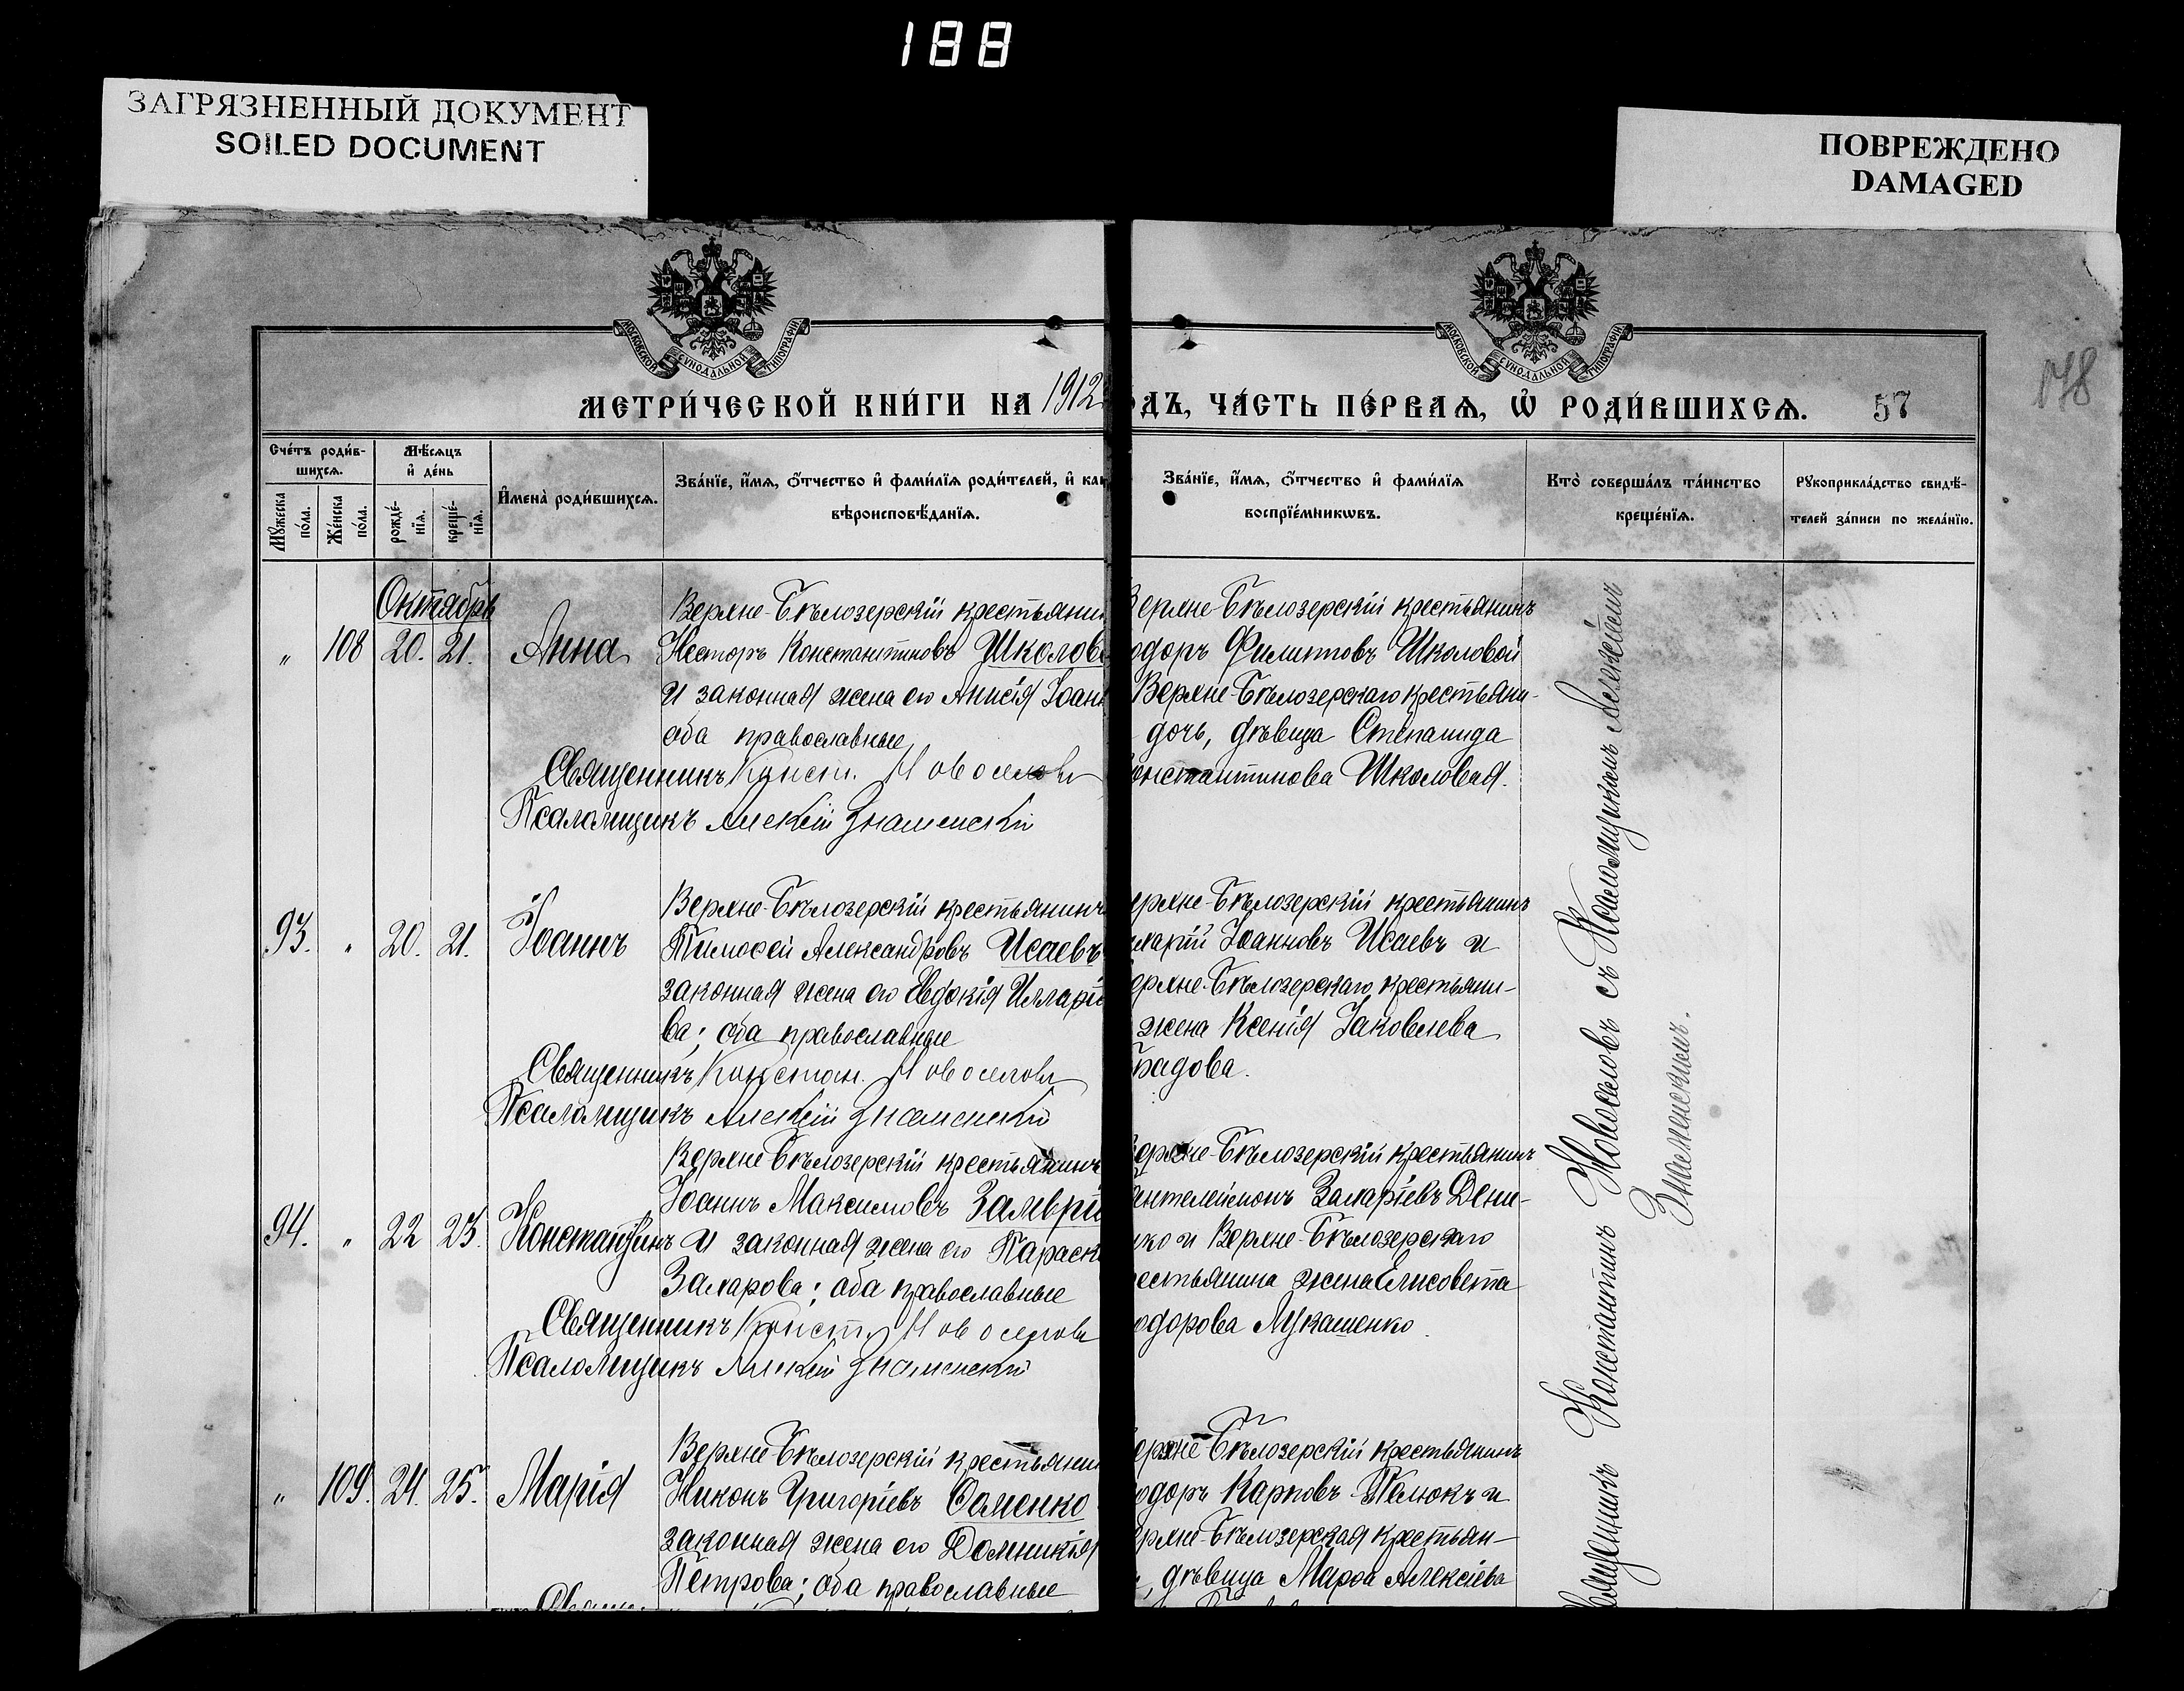 188
ЗАГРЯЗНЕННЫЙ ДОКУМЕНТ
SOILED DOCUMENT
ПОВРЕЖДЕНО
DAMAGED
МОСКОВСКОЙ СУНОДАЛЬНОЙ ТИПОГРАФІИ
МОСКОВСКОЙ СУНОДАЛЬНОЙ ТИПОГРАФІИ
178
МЕТРИ́ЧЕСКОЙ КНИ́ГИ НА 1912
ДЪ, ЧА́СТЬ ПЕ́РВАѦ, Ѡ҆ РОДИ́ВШИХСѦ. 57
Сче́тъ роди́в-
шихсѧ.
Мꙋ́жеска по́ла.
Же́нска по́ла.
Мѣ́сѧцъ
и҆ де́нь
рожде́-
нїѧ.
креще́-
нїѧ.
И҆мена̀ роди́вшихсѧ.
Зва́нїе, и҆́мѧ, ѻ҆́тчество и҆ фами́лїѧ роди́телей, и҆ ка
вѣроисповѣ́данїѧ.
Зва́нїе, и҆́мѧ, ѻ҆́тчество и҆ фами́лїѧ
воспрїе́мникѡвъ.
Кто̀ соверша́лъ та́инство
креще́нїѧ.
Рꙋкоприкла́дство свидѣ́-
телей за́писи по жела́нїю.
Октябрь
" 108 20. 21. Анна
Верхне-Бѣлозерскій крестьянин
Несторъ Константиновъ Школово
и законная жена его Анисія Іоанн
оба православные
Священникъ Конст. Новоселовъ
Псаломщикъ Алексій Знаменскій
ерхне-Бѣлозерскій крестьянинъ
одоръ Филипповъ Школовой
Верхне-Бѣлозерскаго крестьяни-
дочь, дѣвица Степанида
онстантинова Школовая.
93. " 20. 21. Іоаннъ
Верхне-Бѣлозерскій крестьянинъ
Тимоѳей Александровъ Исаевъ
законная жена его Евдокія Илларіо
ва; оба православные
Священникъ Констан. Новоселовъ
Псаломщикъ Алексій Знаменскій
ерхне-Бѣлозерскій крестьянинъ
Іоанновъ Исаевъ и
ерхне-Бѣлозерскаго крестьяни-
жена Ксенія Іаковлева
94. " 22 23. Константинъ
Верхне Бѣлозерскій крестьянинъ
Іоаннъ Максимовъ
и законная жена его Параск
Захарова; оба православные
Священникъ Конст. Новоселовъ
Псаломщикъ Алексій Знаменскій
ерхне-Бѣлозерскій крестьянинъ
антелеймонъ Захаріевъ Дени-
ко и Верхне-Бѣлозерскаго
рестьянина жена Елисовета
одорова Лукашенко
" 109. 24. 25. Марія
Верхне-Бѣлозерскій крестьянин
Никонъ Григоріевъ
законная жена его Домникія
Петрова; оба православные
ерхне-Бѣлозерскій крестьянинъ
одоръ Карповъ и
ерхне-Бѣлозерская крестьян-
, дѣвица Марѳа Алексіева
Священникъ Константинъ Новоселовъ съ Псаломщикомъ Алексіемъ
Знаменскимъ.